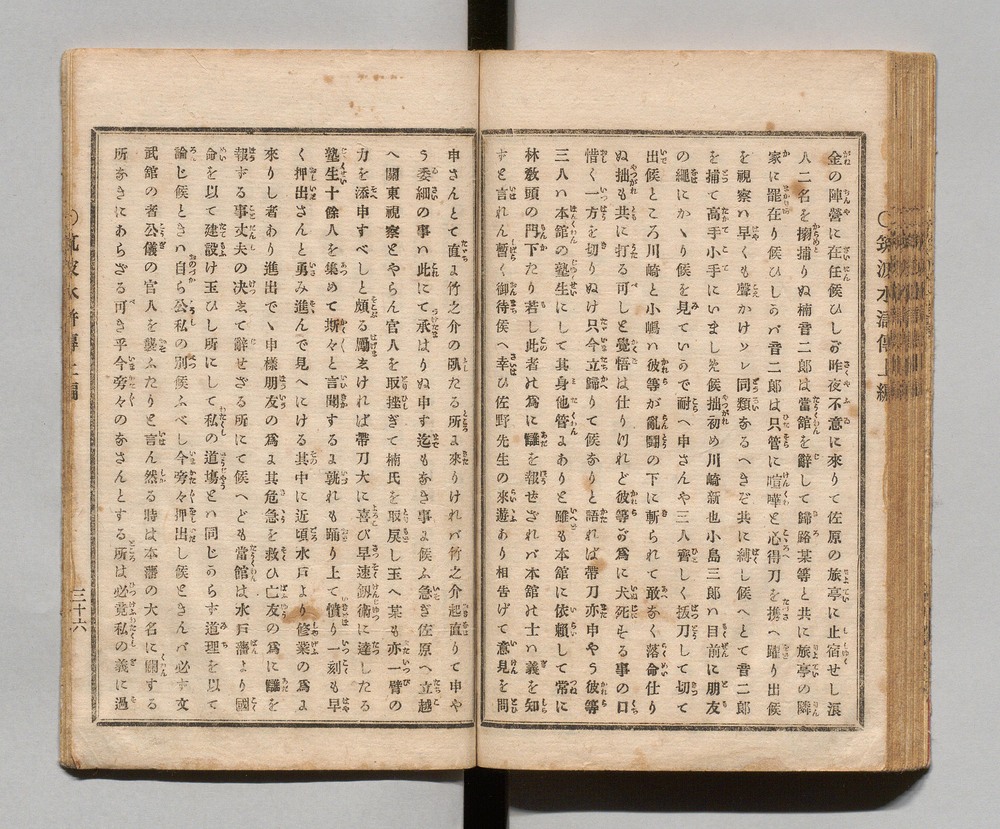 〇筑波水滸傳上編
金の陣營に在任候ひしが昨夜不意に來りて佐原の旅亭に止宿せし浪
人二名を搦捕りぬ楠音二郎は當館を辭して歸路某等と共に旅亭の隣
家に罷在り候ひしかバ音二郎は只管に喧嘩と心得刀を携へ躍り出候
を視察ハ早くも聲かけソレ同類あるへきぞ共に縛し候へとて音二郎
を捕て高手小手にいましめ候拙初め川崎新也小島三郎ハ目前に朋友
の繩にかゝり候を見ていかで耐へ申さんや三人齊しく拔刀して切て
出候ところ川崎と小嶋ハ彼等が亂鬪の下に斬られて敢なく落命仕り
ぬ拙も共に打る可しと覺悟は仕りけれど彼等が爲に犬死する事の口
惜く一方を切りぬけ只今立歸りて候なりと語れば帶刀亦申やう彼等
三人ハ本館の塾生にして其身ハ他管にありと雖も本館に依賴して常に
林敎頭の門下たり若し此者の爲に讎を報せざれバ本館の士ハ義を知
すと言れん暫く御待候へ幸ひ佐野先生の來遊あり相告げて意見を問
申さんとて直に竹之介の臥たる所に來りけれバ竹之介起直りて申や
う委細の事ハ此にて承はりぬ申す迄もなき事に候ふ急ぎ佐原へ立越
へ關東視察とやらん官人を取挫ぎて楠氏を取戾し玉へ某も亦一臂の
力を添申すべしと頗る勵ましければ帶刀大に喜び早速劔術に達したる
塾生十餘人を集めて斯々と言聞するに孰れも踊り上て憤り一刻も早
く押出さんと勇み進んで見へにける其中に近頃水戸より修業の爲に
來りし者あり進出でゝ申樣朋友の爲に其危急を救ひ亡友の爲に讎を
報する事丈夫の决して辭せざる所にて候へども當館は水戸藩より國
命を以て建設け玉ひし所にして私の道塲とハ同じからす道理を以て
論じ候ときハ自ら公私の別候ふべし今旁々押出し候ときんバ必す文
武館の者公儀の官人を襲ふたりと言ん然る時は本藩の大名に關する
所なきにあらざる可き乎今旁々のなさんとする所は必竟私の義に過
〇筑波水滸傳上編
三十六